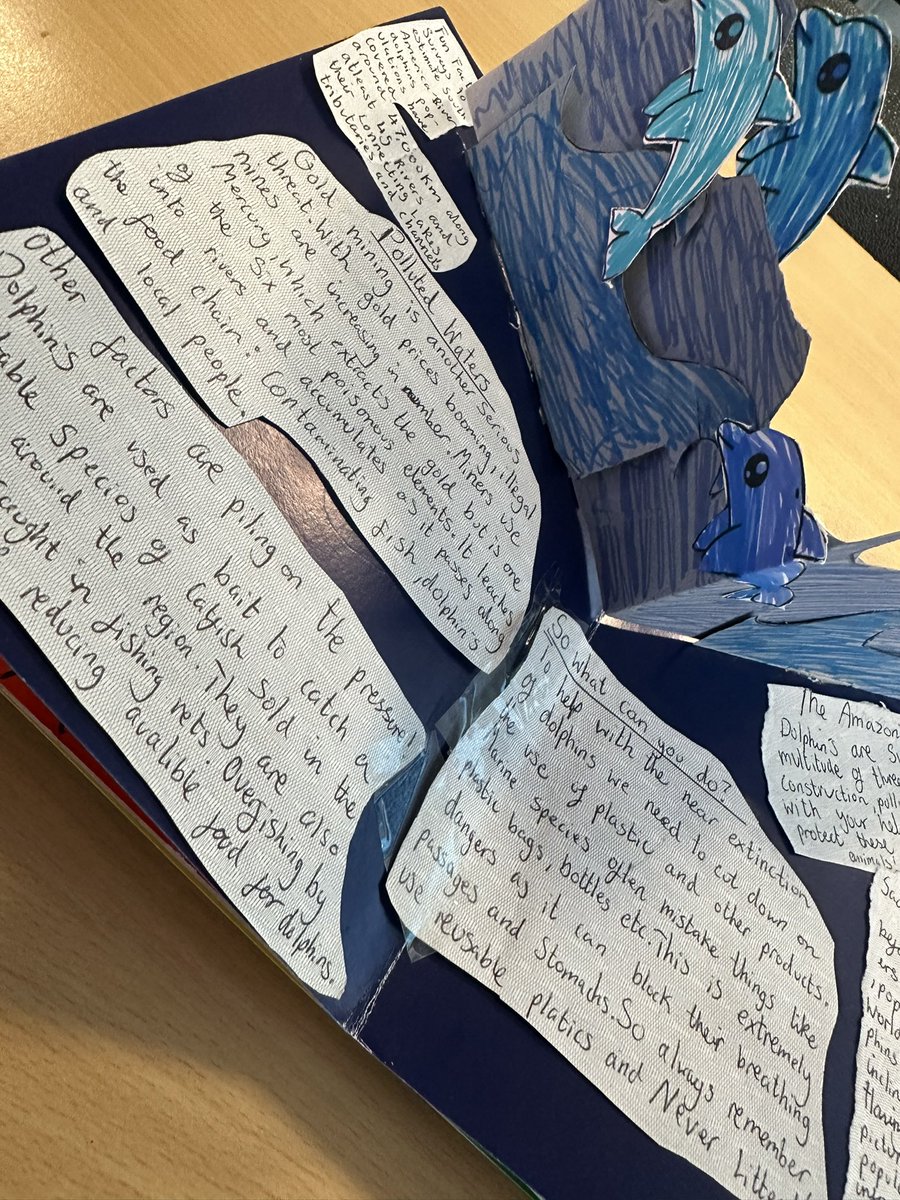 Fun Fact:
Surveys
estimate South
America River
dolphins pop
ulations have
Covered 47,000km along
around 45 Rivers and
atleast connecting Lakes
their and channels
tributaries
Polluted Waters
Gold mining is another serious
threat. With gold prices booming, illegal
mines are increasing in number. Miners use
Mercury, which extracts the gold but is one
of the Six most poisonous elements. It leaches
into rivers and accumulates as it passes along
the food chain: Contaminating fish, dolphin's
and local people.
Other factors are piling on the pressure!
Dolphin's are used as bait to catch a
Species of Catfish Sold in the
around the region They are also
caught in fishing nets Overfishing by
reducing availible food for dolphins.
So what can you do?
To help with the near extinction
of dolphins we need to cut down on
the use of plastic and other products.
Marine Species often mistake things like
plastic bags, bottles etc. This is extremely
dangers as it can block their breathing
passages and Stomachs. So always remember
use reusable platics and Never Litte
The Amazon
Dolphin's are
multitude of
Construction
with your
protect these
animals!